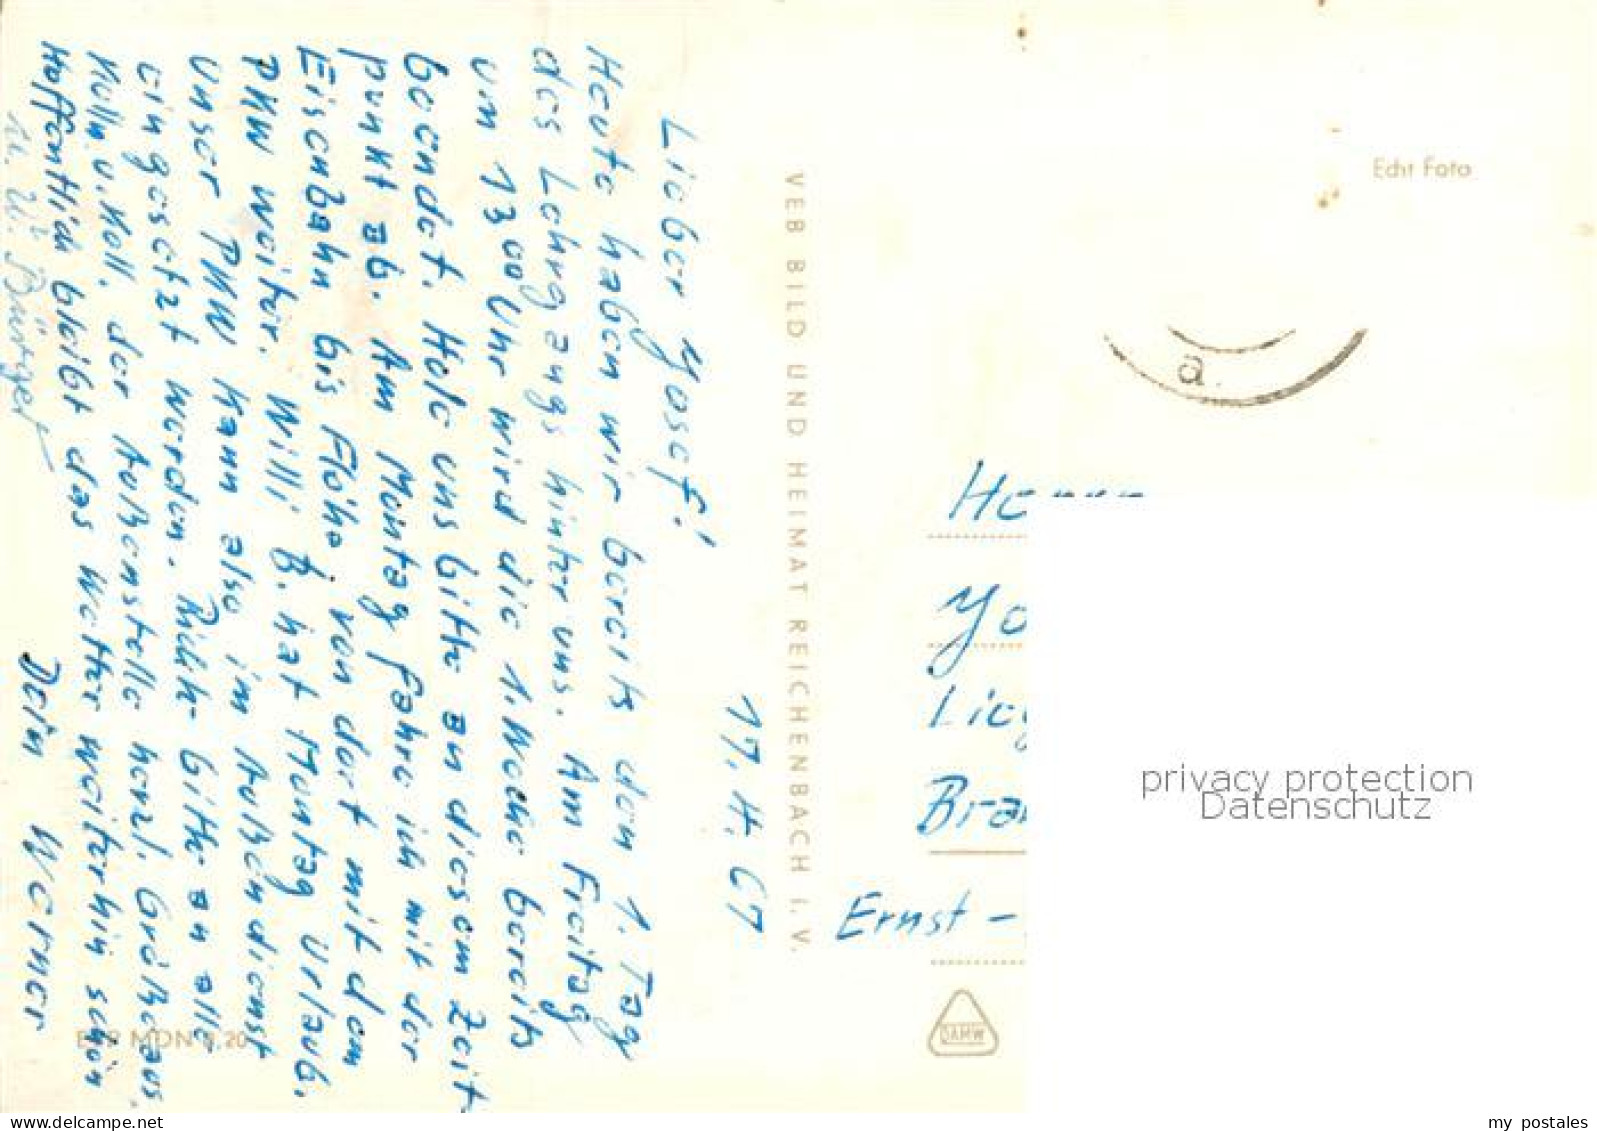 17. 4. 67
Lieber Yosef!
Heute haben wir bereits den 1. Tag
des Lehrgangs hinter uns. Am Freitag
um 13 00 Uhr wird die 1. Woche bereits
beendet. Hole uns bitte an diesem Zeit
punkt ab. Am Montag fahre ich mit der
Eisenbahn bis Flöha. Von dort mit dem
PKW weiter. Willi B. hat Montag Urlaub.
Unser PKW kann also im Außendienst
eingesetzt werden. Richte bitte an alle
Kolln u. Koll. der Außenstelle herzl. Grüße aus.
Hoffentlich bleibt das Wetter weiterhin schön
Dein Werner
u. W. Bürger
EVP MDN 0,20
VEB BILD UND HEIMAT REICHENBACH i. V.
Echt Foto
a
Herrn
Yo
Lie
Bra
Ernst -
DAMW
privacy protection
Datenschutz
delcampe.net
my_postales